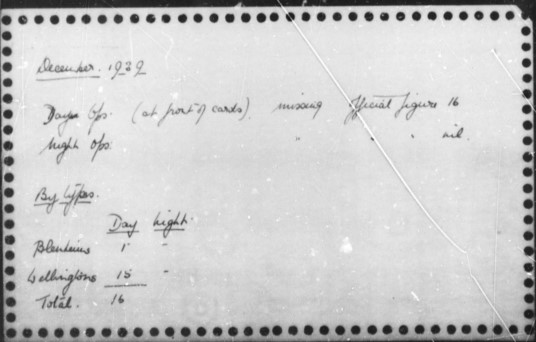 December. 1939
Day Ops. (at front of cards). missing official figure 16
Night Ops. " " " nil.
By types.
Day Night.
Blenheims 1 -
Wellingtons 15 -
Total. 16